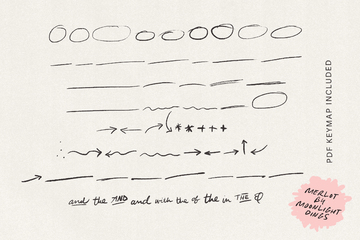 and the AND and with the of the in THE &
PDF KEYMAP INCLUDED
MERLOT
BY
MOONLIGHT
DINGS